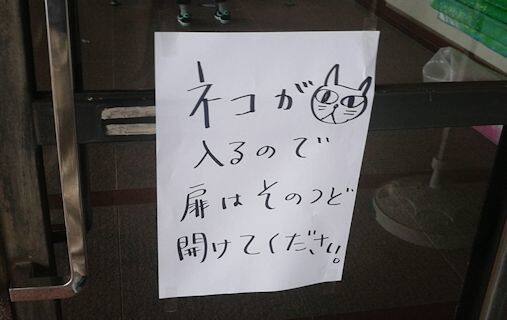 ネコが
入るので
扉はそのつど
開けてください!